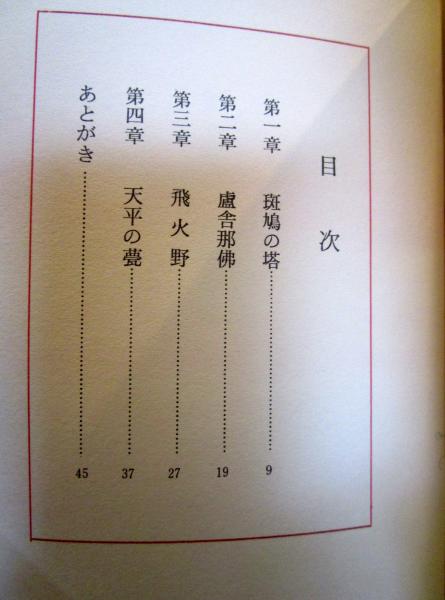 目次
第一章 斑鳩の塔……9
第二章 盧舎那佛……19
第三章 飛火野……27
第四章 天平の甍……37
あとがき……45